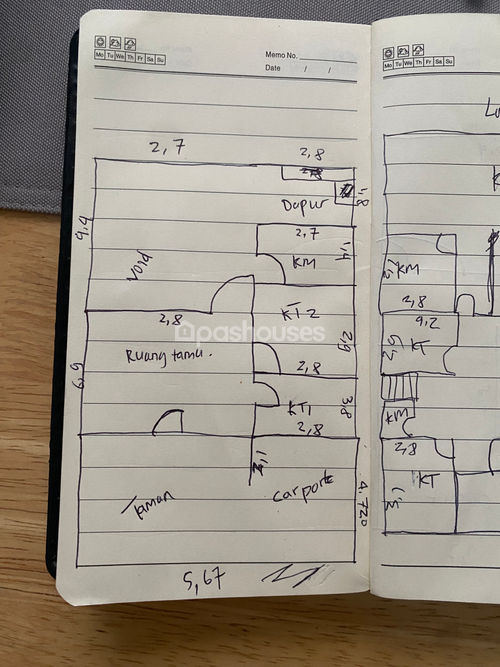 Memo No.
Mo Tu We Th Fr Sa Su
Date / /
2,7
2,8
Dapur
1,8
2,7
9,4
KM
1,4
Void
KT 2
2,8
2,9
Ruang tamu.
2,8
6,9
KT1
3,8
2,8
1,2
Taman
carport
4,720
5,67
pashouses
Mo Tu We Th Fr Sa Su
KM
2,8
9,2
KT
KM
2,8
KT